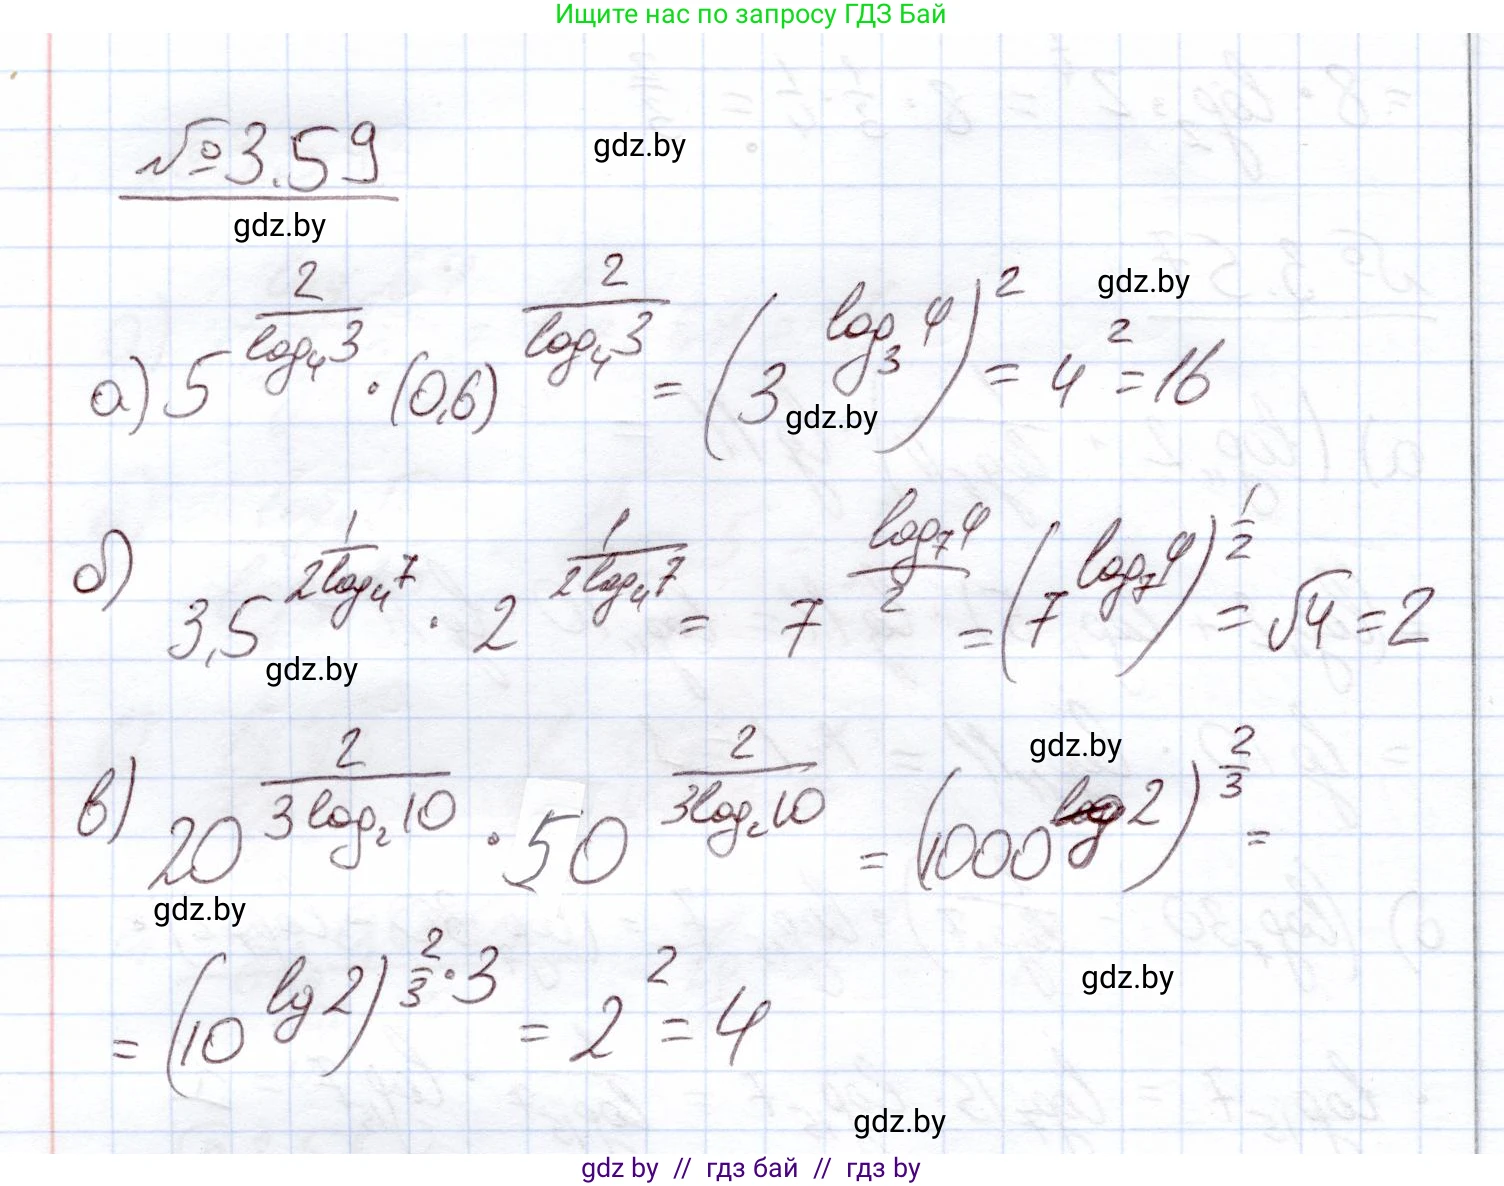 Ищите нас по запросу ГДЗ Бай
№3.59
gdz.by
gdz.by
а) 5^(2/log₄3) · (0,6)^(2/log₄3) = (3^(log₃4))² = 4² = 16
gdz.by
gdz.by
б) 3,5^(1/(2log₄7)) · 2^(1/(2log₄7)) = 7^(log₇4/2) = (7^(log₇4))^(1/2) = √4 = 2
gdz.by
в) 20^(2/(3log₂10)) · 50^(2/(3log₂10)) = (1000^(lg2))^(2/3) =
gdz.by
gdz.by
= (10^(lg2))^(2/3·3) = 2² = 4
gdz.by
gdz.by
gdz by // гдз бай // гдз by